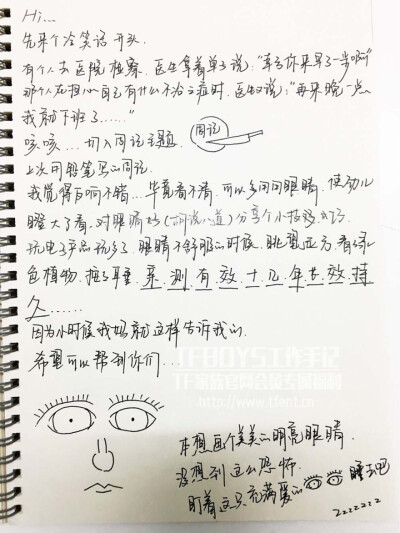 Hi...
先来个冷笑话开头.
有个人去医院检察. 医生拿着单子说, "幸亏你来早了一步啊"
那个人在担心自己有什么不治之症时. 医生又说: "再来晚一点.
我就下班了......"
咳咳... 切入周记主题. 周记
上次用铅笔写的周记.
我觉得反响不错... 毕竟看不清. 可以多问问眼睛. 使劲儿
瞪大了看. 对眼睛好 (胡说八道) 分享个小技巧
玩电子产品玩多了 眼睛不舒服的时候. 眺望远方. 看绿
色植物. 揉耳垂 亲测有效十几年专效持
久......
因为小时候我妈就这样告诉我的.
希望可以帮到你们...
TFBOYS工作手记
TF家族官网会员专属福利
http://www.tfent.cn
本想画个美美的明亮眼睛.
没想到这么恐怖.
盯着这只充满爱的 睡去吧
zzzzzzz